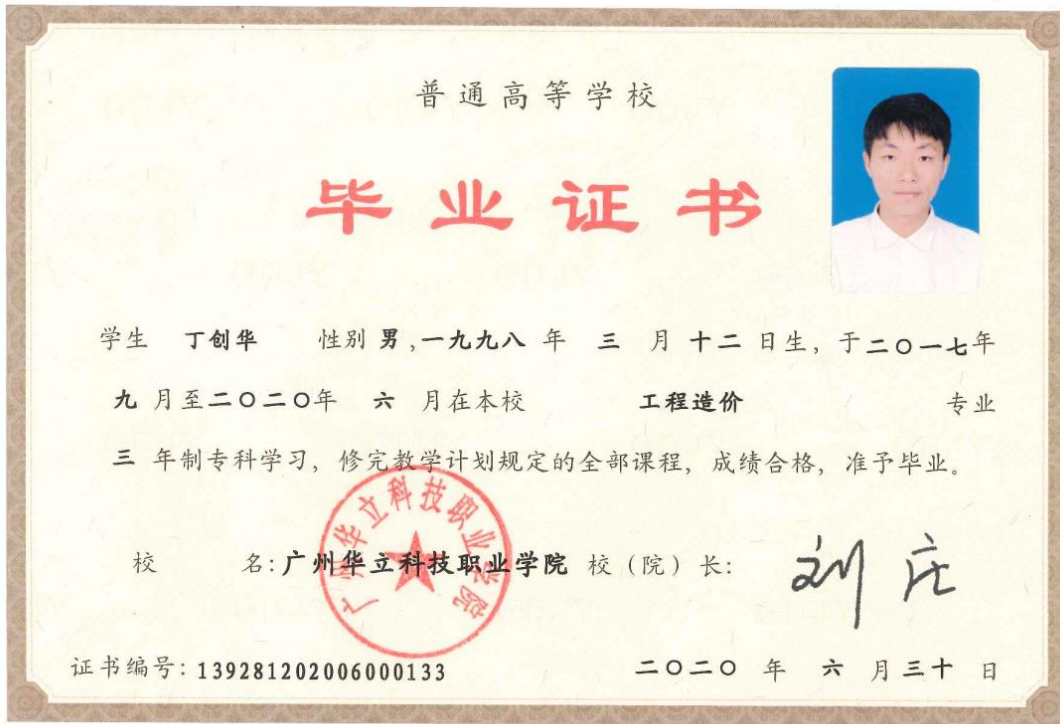 普通高等学校
毕业证书
学生 丁创华 性别 男,一九九八 年 三 月 十二 日生，于二〇一七年
九 月至二〇二〇年 六 月在本校 工程造价 专业
三 年制专科学习，修完教学计划规定的全部课程，成绩合格，准予毕业。
广州华立科技职业学院
校 名:广州华立科技职业学院 校（院）长: 刘庄
证书编号: 139281202006000133 二〇二〇 年 六 月三十 日